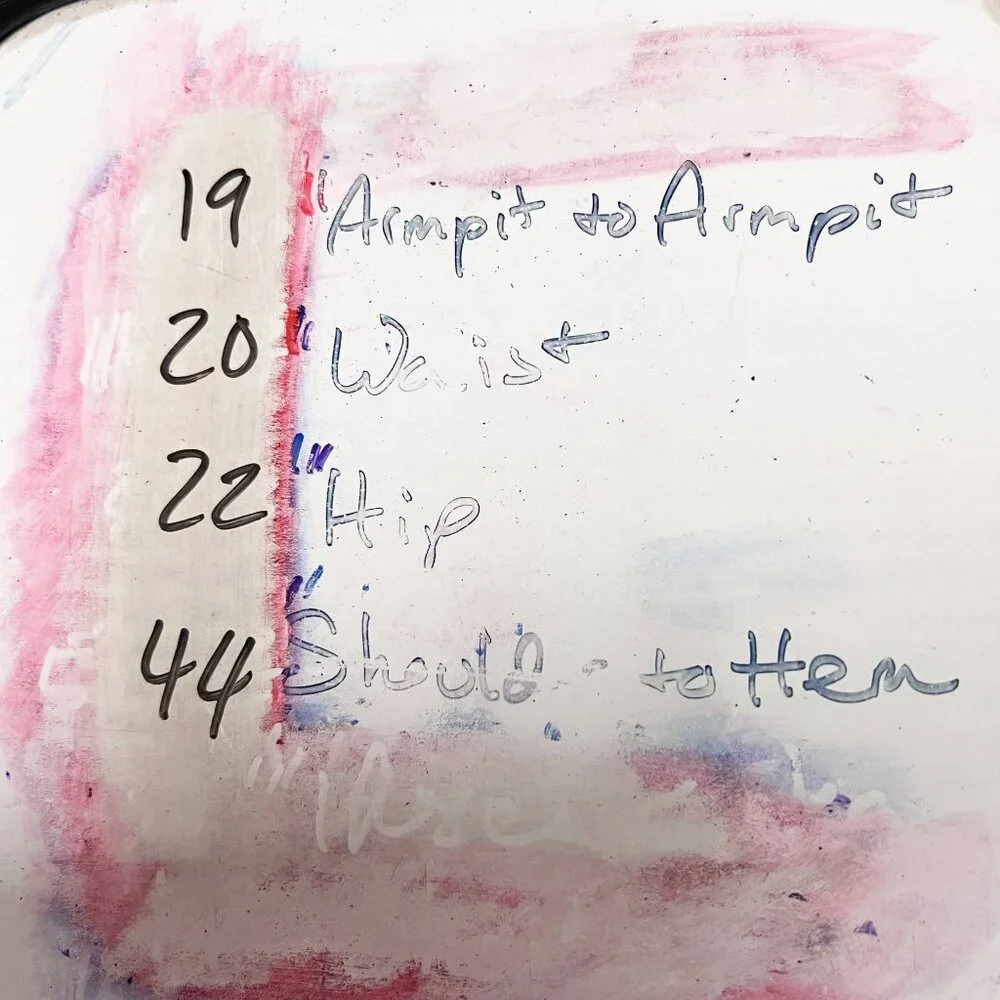 19" Armpit to Armpit
20" Waist
22" Hip
44" Should - to Hem